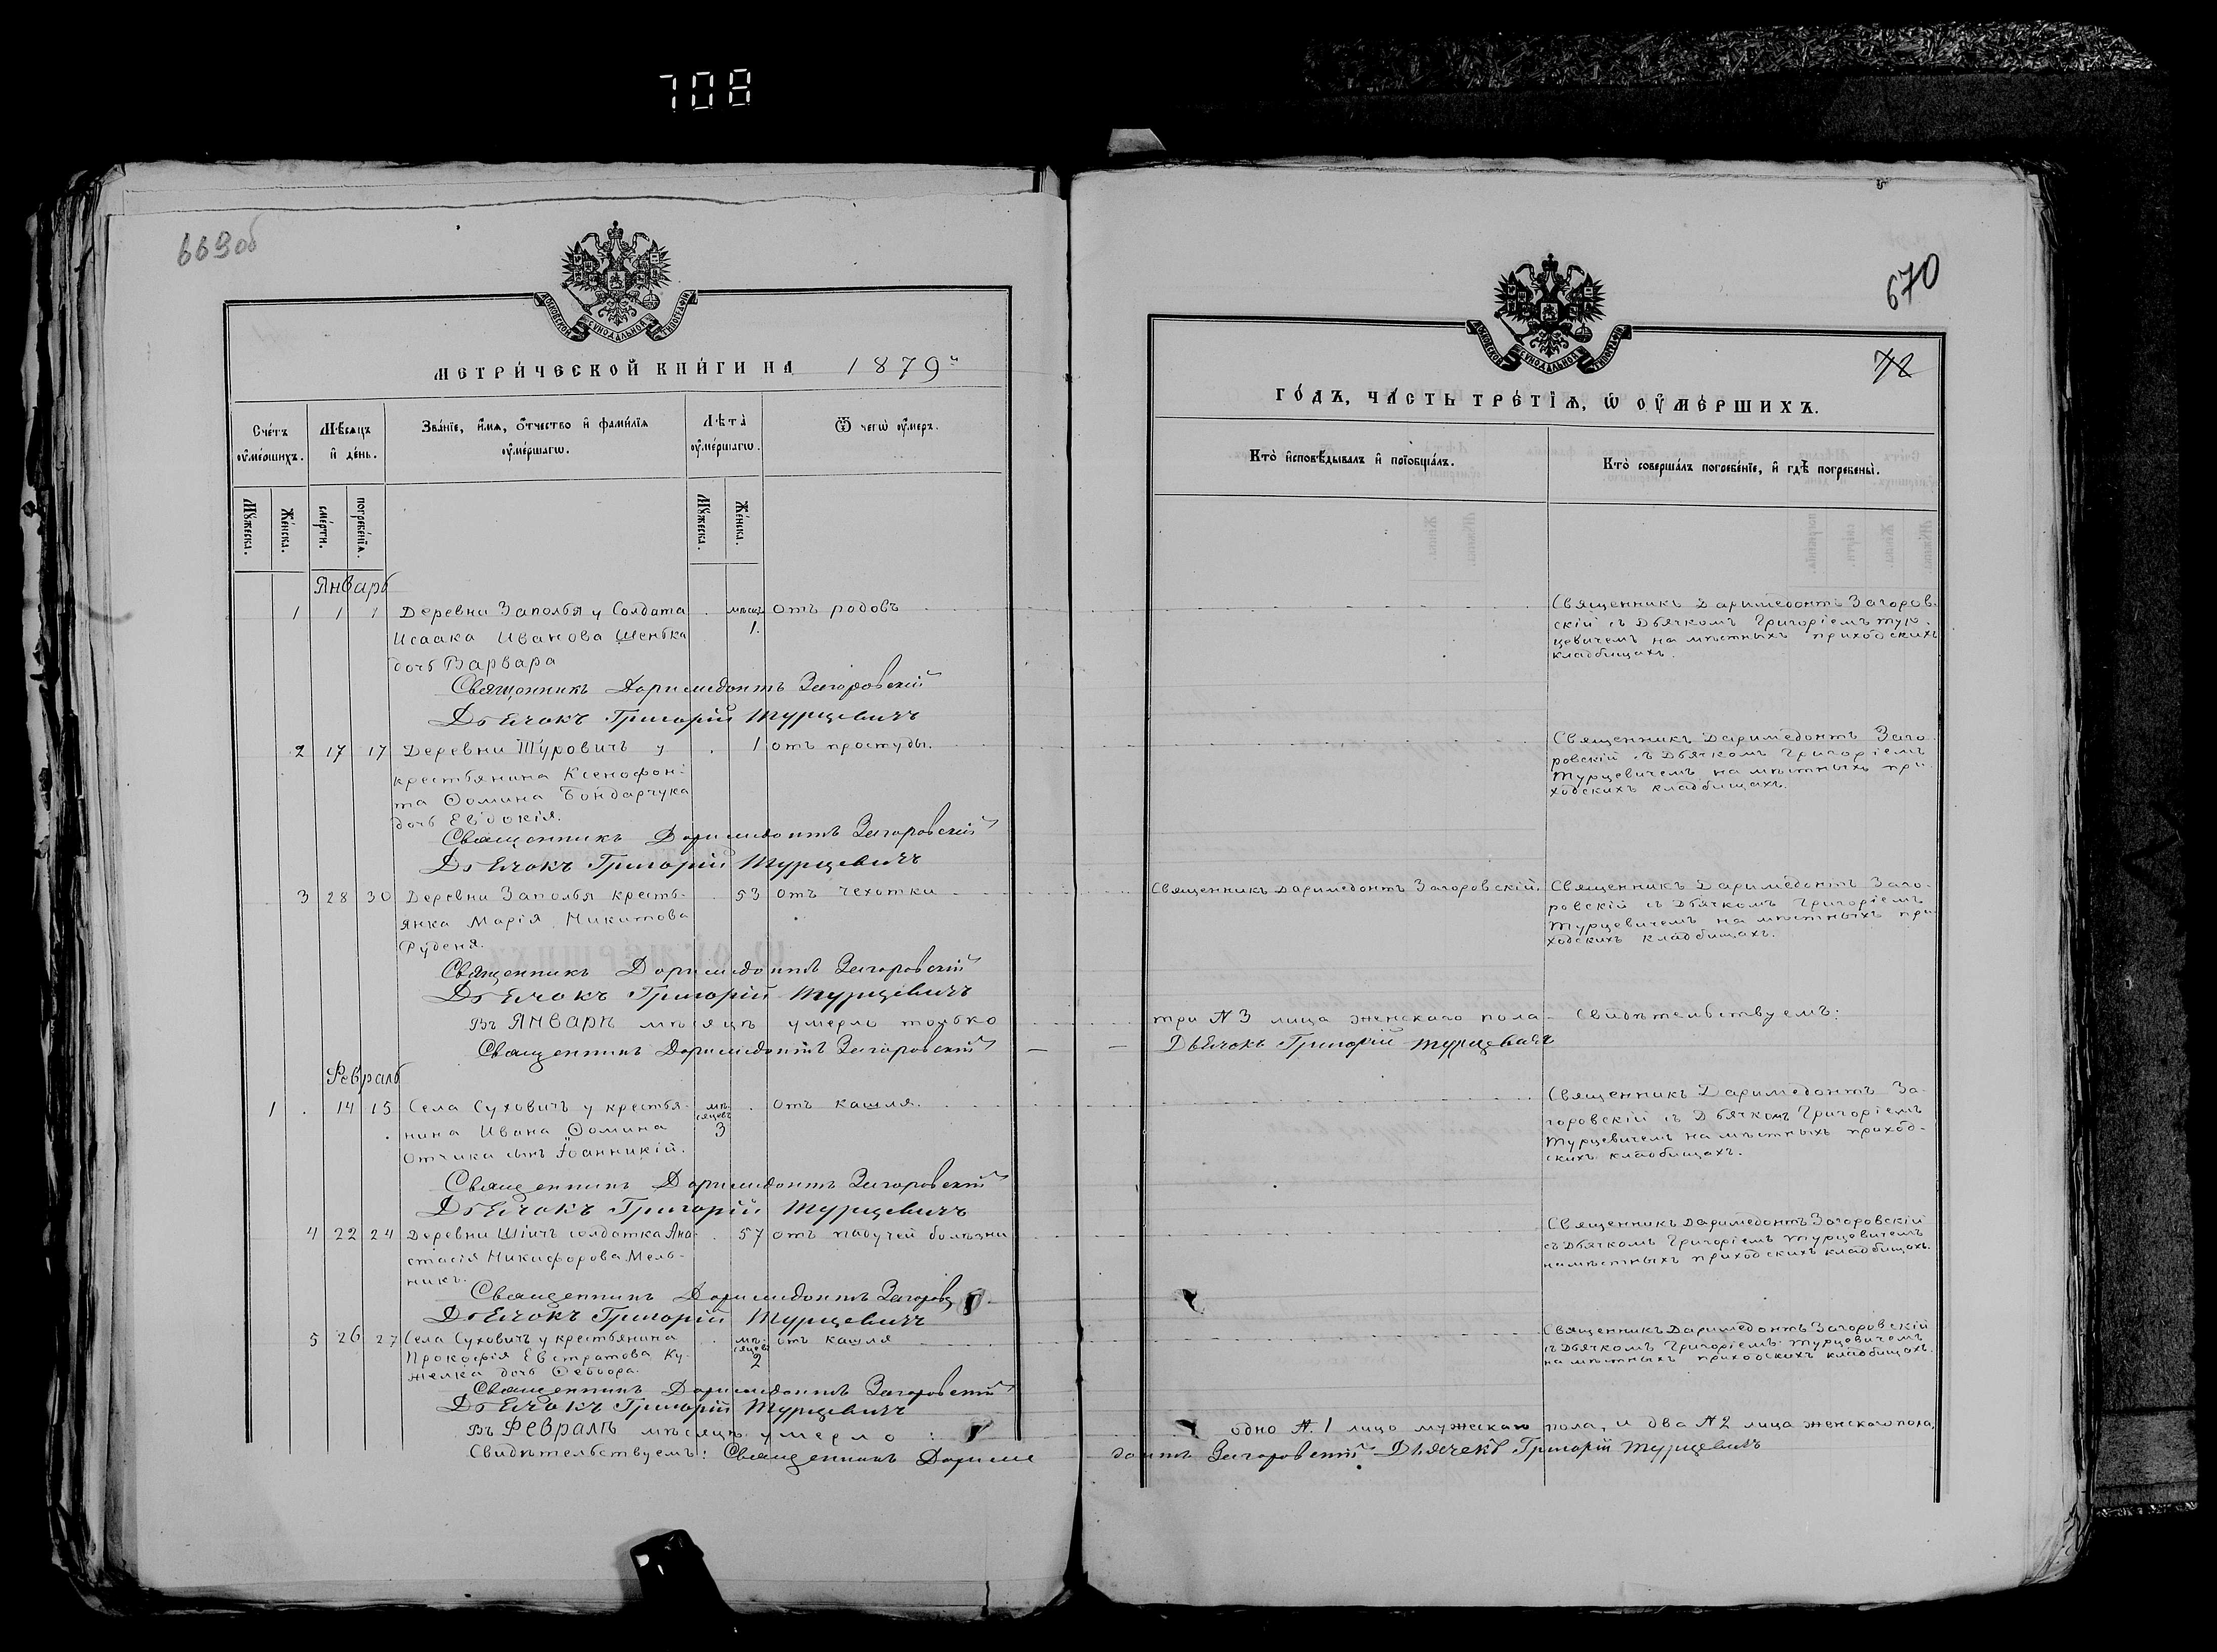 708
669об
МОСКОВСКОЙ СѴНОДАЛЬНОЙ ТИПОГРАФІИ
МЕТРИ́ЧЕСКОЙ КНИ́ГИ НА 1879й
Сче́тъ оу҆ме́ршихъ.
Мѣ́сѧцъ и҆ де́нь.
Зва́нїе, и҆́мѧ, ѻ҆́тчество и҆ фами́лїѧ оу҆ме́ршагѡ.
Лѣ̀та̀ оу҆ме́ршагѡ.
Ѿ чегѡ̀ оу҆́меръ.
Мꙋ́жеска.
Же́нска.
сме́рти.
погребе́нїѧ.
Мꙋ́жеска.
Же́нска.
Январь
1 1 1 Деревни Заполья у Солдата . мѣсяц. отъ родовъ
Исаака Иванова Шенбка 1.
дочь Варвара
Священникъ Доримедонтъ Загоровскій
Дьячокъ Григорій Турцевичъ
2 17 17 Деревни Туровичъ у . 1 отъ простуды.
крестьянина Ксенофон-
та Ѳомина Бондарчука
дочь Евдокія.
Священникъ Доримедонтъ Загоровскій
Дьячокъ Григорій Турцевичъ
3 28 30 Деревни Заполья кресть- . 53 отъ чехотки
янка Марія Никитова
Руденя.
Священникъ Доримедонтъ Загоровскій
Дьячокъ Григорій Турцевичъ
Въ Январѣ мѣсяцѣ умерло только
Священникъ Доримедонтъ Загоровскій
Февраль
1 . 14 15 Села Суховичъ у крестья- мѣсяцевъ . отъ кашля.
нина Ивана Ѳомина 3
Отчика сынъ Іоанникій.
Священникъ Доримедонтъ Загоровскій
Дьячокъ Григорій Турцевичъ
4 22 24 Деревни Шіичъ солдатка Ана- . 57 отъ падучей болѣзни
стасія Никифорова Мель-
никъ.
Священникъ Доримедонтъ Загоровс
Дьячокъ Григорій Турцевичъ
5 26 27 Села Суховичъ у крестьянина . мѣсяцев отъ кашля
Прокофія Евстратова Ку- 2
желка дочь Ѳеѳора.
Священникъ Доримедонтъ Загоровскій
Дьячокъ Григорій Турцевичъ
Въ Февралѣ мѣсяцѣ умерло :
Свидѣтельствуемъ: Священникъ Дориме
670
72
МОСКОВСКОЙ СѴНОДАЛЬНОЙ ТИПОГРАФІИ
ГО́ДЪ, ЧА́СТЬ ТРЕ́ТЇѦ, Ѡ҆ ОУ҆МЕ́РШИХЪ.
Кто̀ и҆сповѣ́дывалъ и҆ прїѻбща́лъ.
Кто̀ соверша́лъ погребе́нїе, и҆ гдѣ̀ погребены̀.
Священникъ Даримедонтъ Загоров-
скій съ Дьячкомъ Григоріемъ Тур-
цевичемъ на мѣстныхъ приходскихъ
кладбищахъ.
Священникъ Даримедонтъ Заго-
ровскій съ Дьячкомъ Григоріемъ
Турцевичемъ на мѣстныхъ при-
ходскихъ кладбищахъ.
Священникъ Даримедонтъ Загоровскій.
Священникъ Даримедонтъ Заго-
ровскій съ Дьячкомъ Григоріемъ
Турцевичемъ на мѣстныхъ при-
ходскихъ кладбищахъ.
три N 3 лица женскаго пола - Свидѣтельствуемъ:
Дьячокъ Григорій Турцевичъ
Священникъ Даримедонтъ За-
горовскій съ Дьячкомъ Григоріемъ
Турцевичемъ на мѣстныхъ приход-
скихъ кладбищахъ.
Священникъ Даримедонтъ Загоровскій
съ Дьячкомъ Григоріемъ Турцевичемъ
на мѣстныхъ приходскихъ кладбищахъ.
Священникъ Даримедонтъ Загоровскій
съ Дьячкомъ Григоріемъ Турцевичемъ
на мѣстныхъ приходскихъ кладбищахъ.
одно N. 1 лицо мужескаго пола, и два N 2 лица женскаго пола.
донтъ Загоровскій Дьячекъ Григорій Турцевичъ